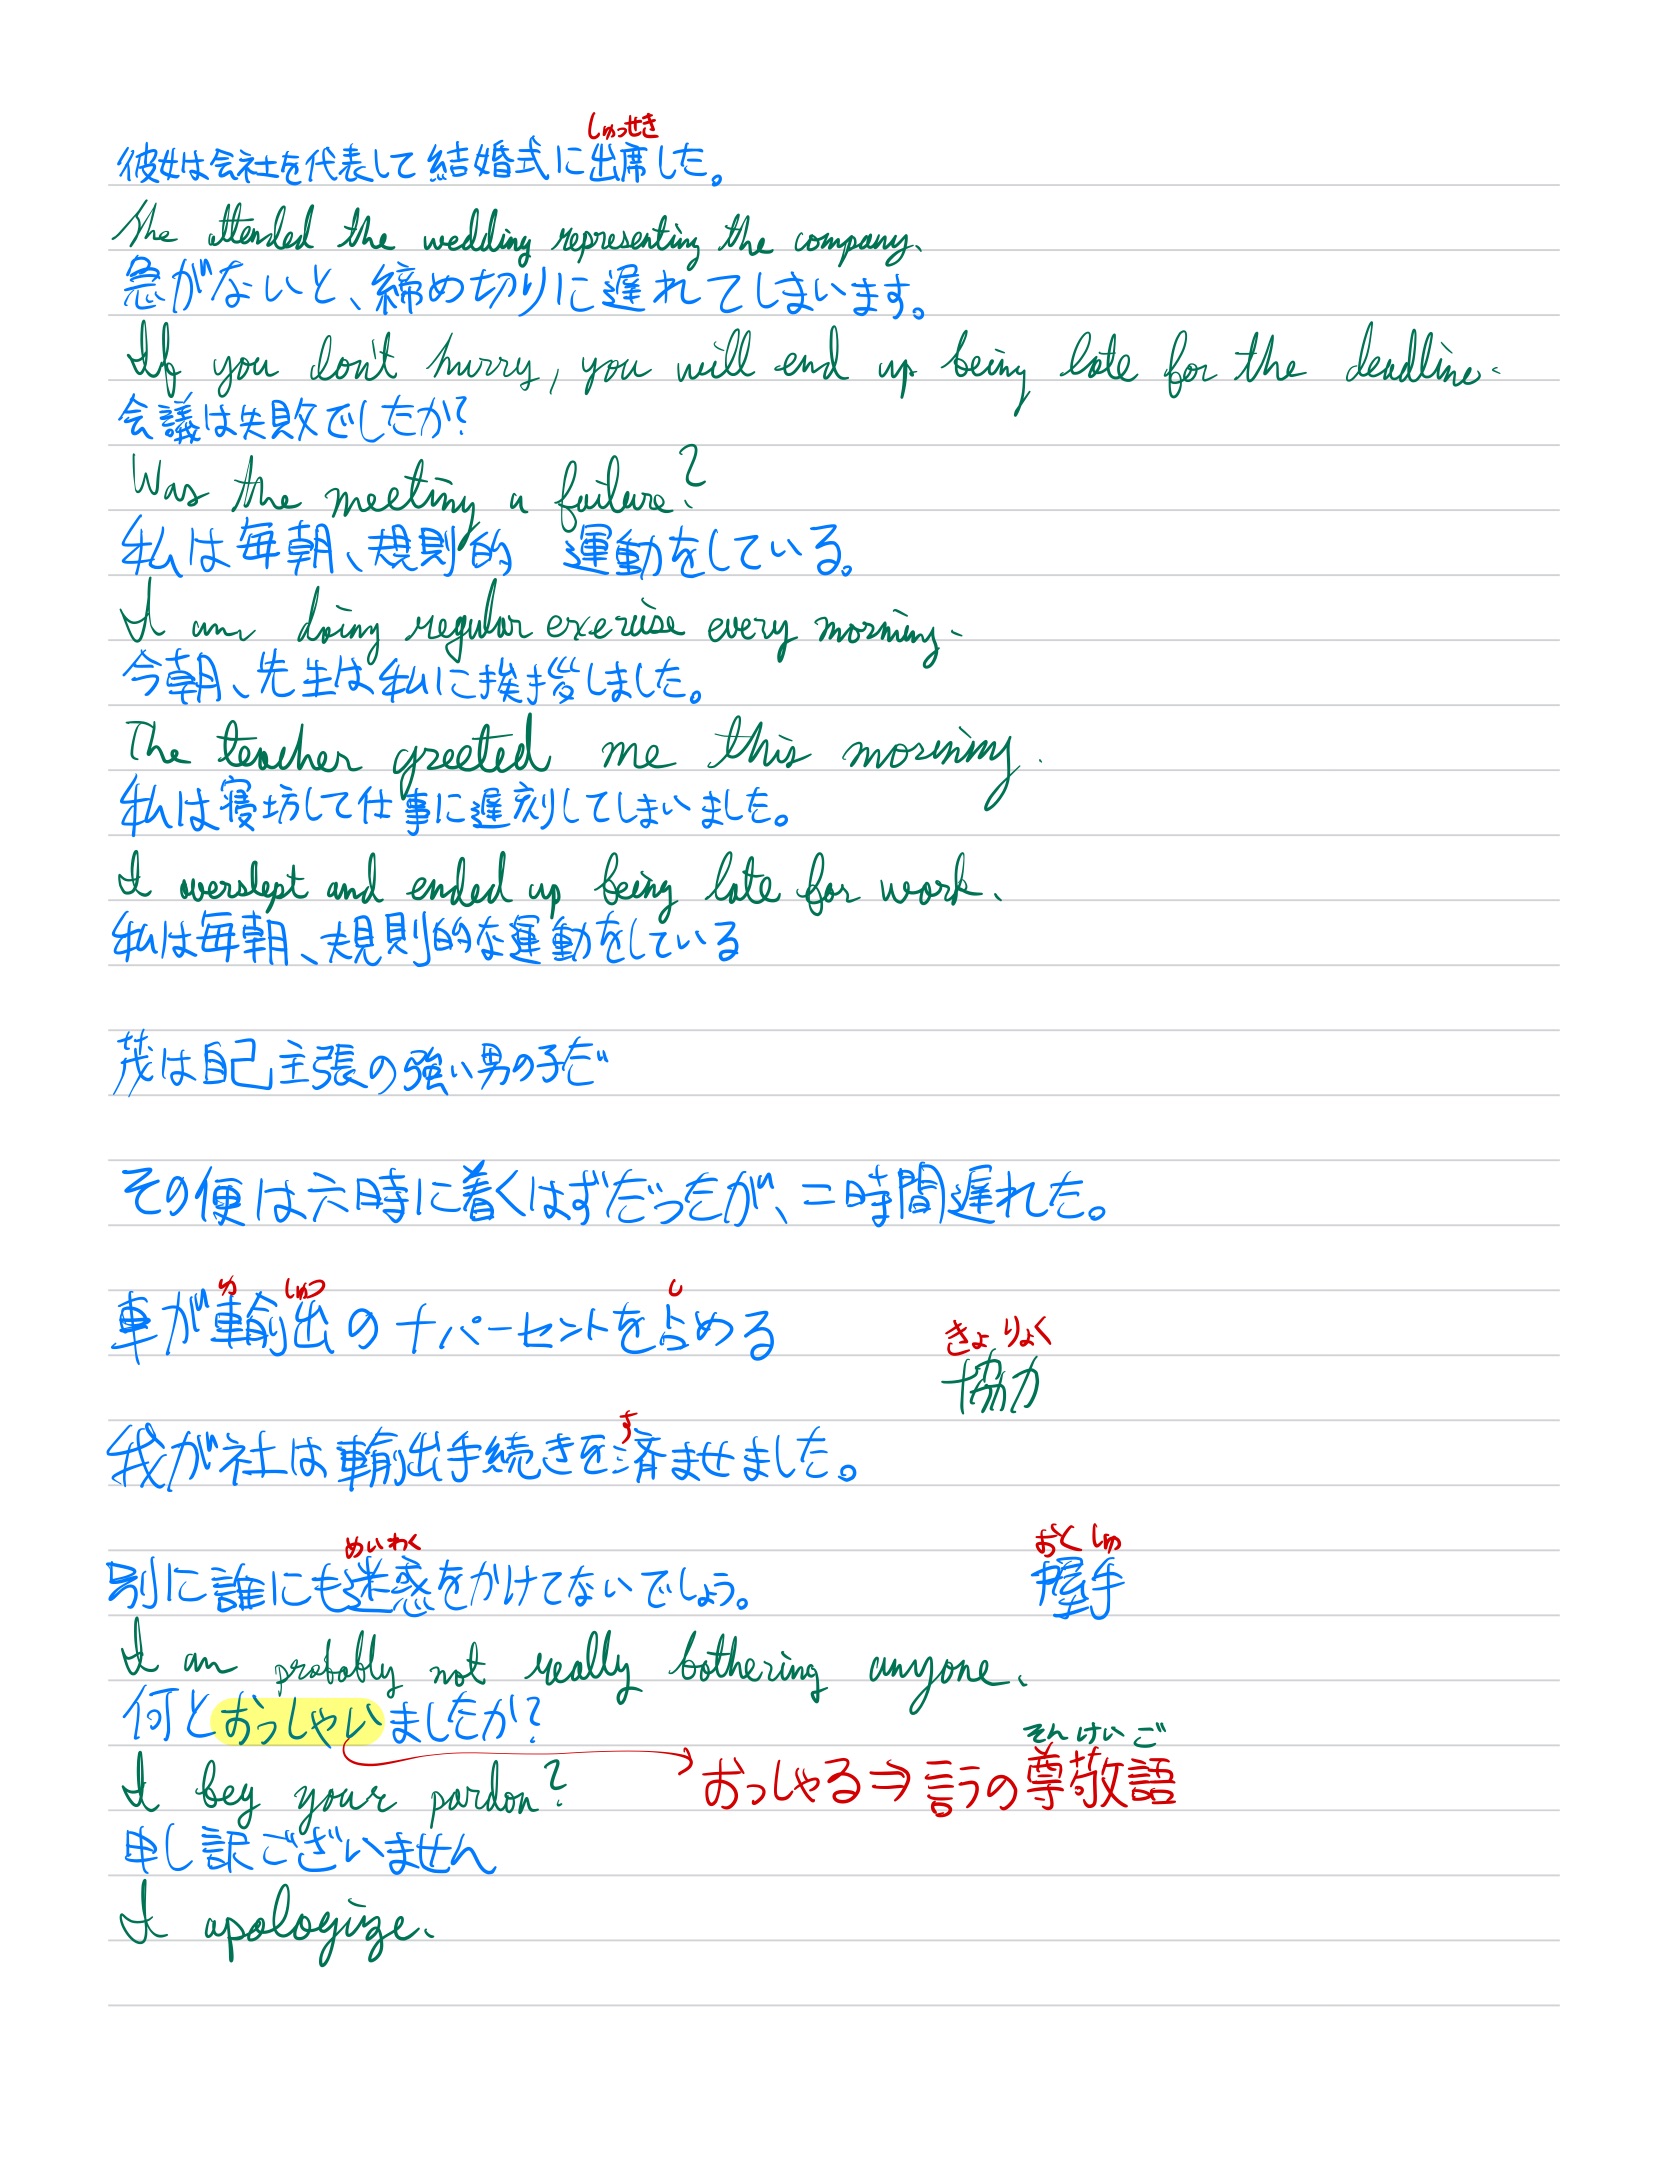 しゅっせき
彼女は会社を代表して結婚式に出席した。
She attended the wedding representing the company.
急がないと、締め切りに遅れてしまいます。
If you don't hurry, you will end up being late for the deadline.
会議は失敗でしたか?
Was the meeting a failure?
私は毎朝、規則的 運動をしている。
I am doing regular exercise every morning.
今朝、先生は私に挨拶しました。
The teacher greeted me this morning.
私は寝坊して仕事に遅刻してしまいました。
I overslept and ended up being late for work.
私は毎朝、規則的な運動をしている
茂は自己主張の強い男の子だ
その便は六時に着くはずだったが、二時間遅れた。
ゆ しゅつ し
車が輸出の十パーセントを占める
きょ りょく
協力
す
我が社は輸出手続きを済ませました。
めいわく おくしゅ
別に誰にも迷惑をかけてないでしょう。 握手
I am probably not really bothering anyone.
何とおっしゃいましたか?
そんけいご
I beg your pardon? おっしゃる⇒言うの尊敬語
申し訳ございません
I apologize.